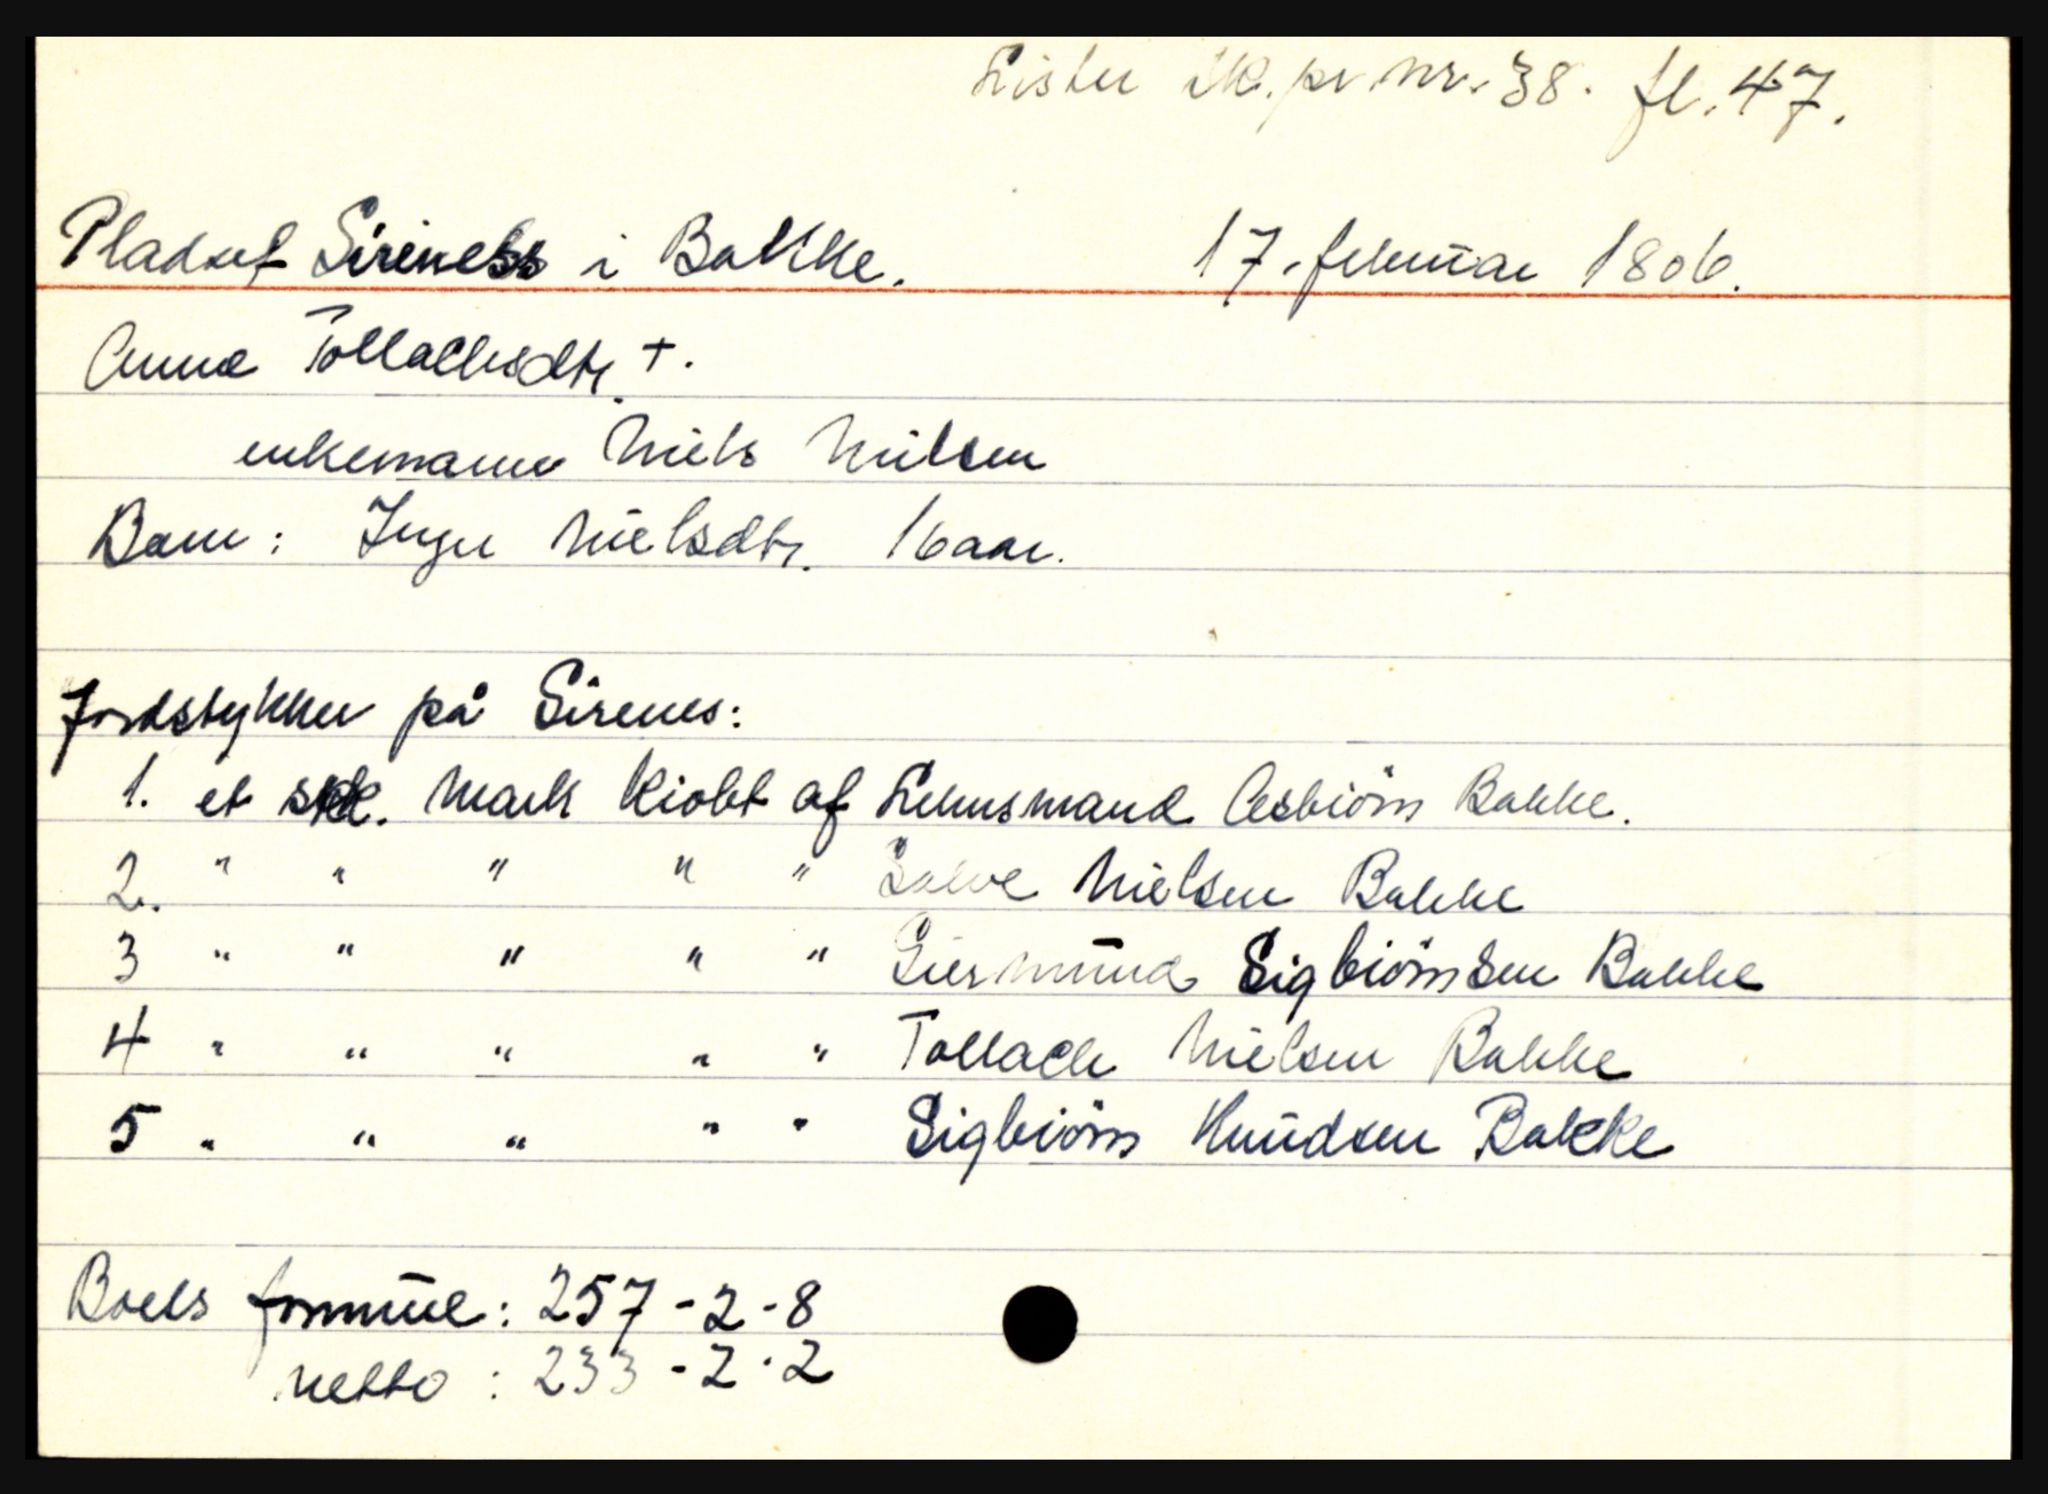 Lister sk.pr.nr. 38. fl. 47.
Pladset Sireness i Bakke. 17. februar 1806.
Anna Tollachsdtr. +.
enkemann Niels Nielsen
Barn: Inger Nielsdtr. 16 aar.
Jordstykker på Sirenes:
1. et stk. Mark kiobt af Lensmand Aesbiörn Bakke.
2. " " " " " Salve Nielsen Bakke
3 " " " " " Giermund Sigbiörnsen Bakke
4 " " " " " Tollach Nielsen Bakke
5 " " " " " Sigbiörn Knudsen Bakke
Boets formue: 257-2-8
netto: 233-2-2